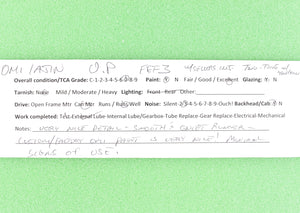 OMI/AJIN O.P FEF3 w/
Overall condition/TCA Grade: C-1-2-3-4-5-6-7-8-9 Paint: Y N Fair / Good / Excellent Glazing: Y N
Tarnish: None Mild / Moderate / Heavy Lighting: Front Rear Other
Drive: Open Frame Mtr Can Mtr Runs / Runs Well Noise: Silent 2-3-4-5-6-7-8-9-Ouch! Backhead/Cab Y N
Work completed: Test External Lube-Internal Lube/Gearbox-Tube Replace Gear Replace-Electrical-Mechanical
Notes: VERY NICE DETAIL - SMOOTH & QUIET RUNNER -
CUSTOM/FACTORY PAINT IS VERY NICE! MINIMAL
SIGNS OF USE.